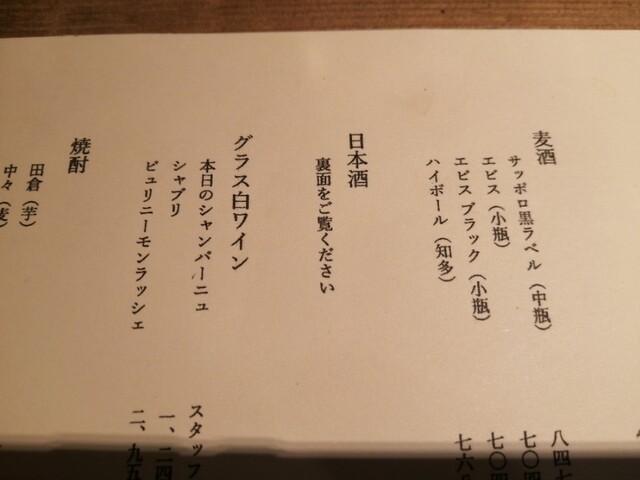 麦酒
サッポロ黒ラベル（中瓶） 八四七
エビス（小瓶） 七〇四
エビス ブラック（小瓶） 七〇四
ハイボール（知多） 七六
日本酒
裏面をご覧ください
グラス白ワイン
本日のシャンパーニュ スタッフ
シャブリ 一、二四
ピュリニーモンラッシェ 二、九五
焼酎
田倉（芋）
中々（麦）